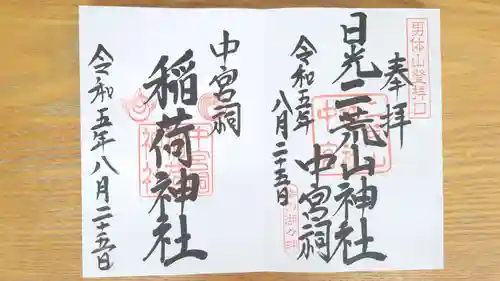 男体山登拝口
奉拝
日光二荒山神社
中宮祠
令和五年
八月二十五日
中宮祠
稲荷神社
令和五年八月二十五日